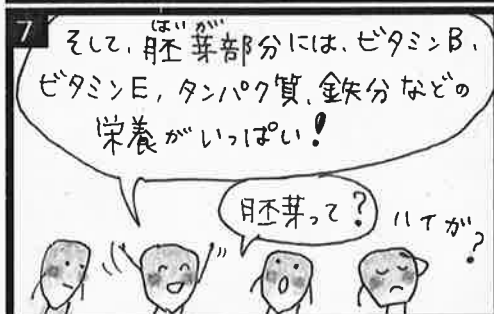 7
そして、胚芽部分には、ビタミンB、
はいが
ビタミンE、タンパク質、鉄分などの
栄養がいっぱい!
胚芽って?
ハイが?